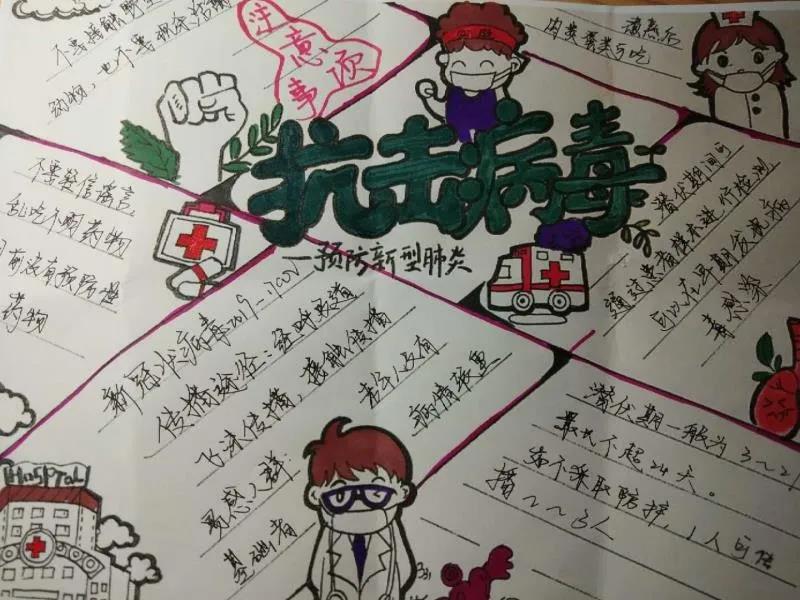 不要接触野生
动物，也不要
注意事项
肉类蛋类可吃
抗击病毒
—预防新型肺炎
不要轻信谣言，
乱吃不明药物
目前没有预防性
药物
潜伏期间可
通过患者样本进行检测
可以在早期发现病
毒感染
新冠状病毒2019-nCoV
传播途径：经呼吸道
飞沫传播，接触传播
易感人群：老人及有
基础者 病情较重
潜伏期一般为3~
最长不超24天。
如不采取防护，1人可传
播2~3人
Hospital